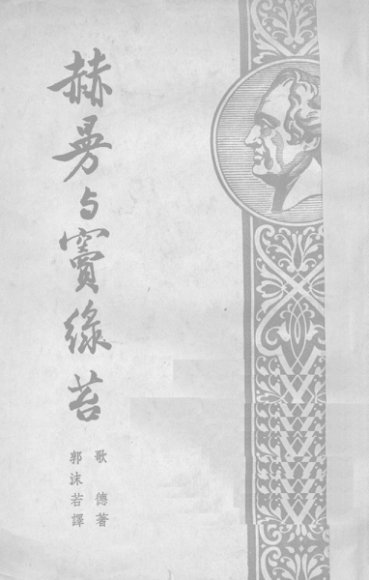 赫曼与竇綠苔
歌德著
郭沫若譯